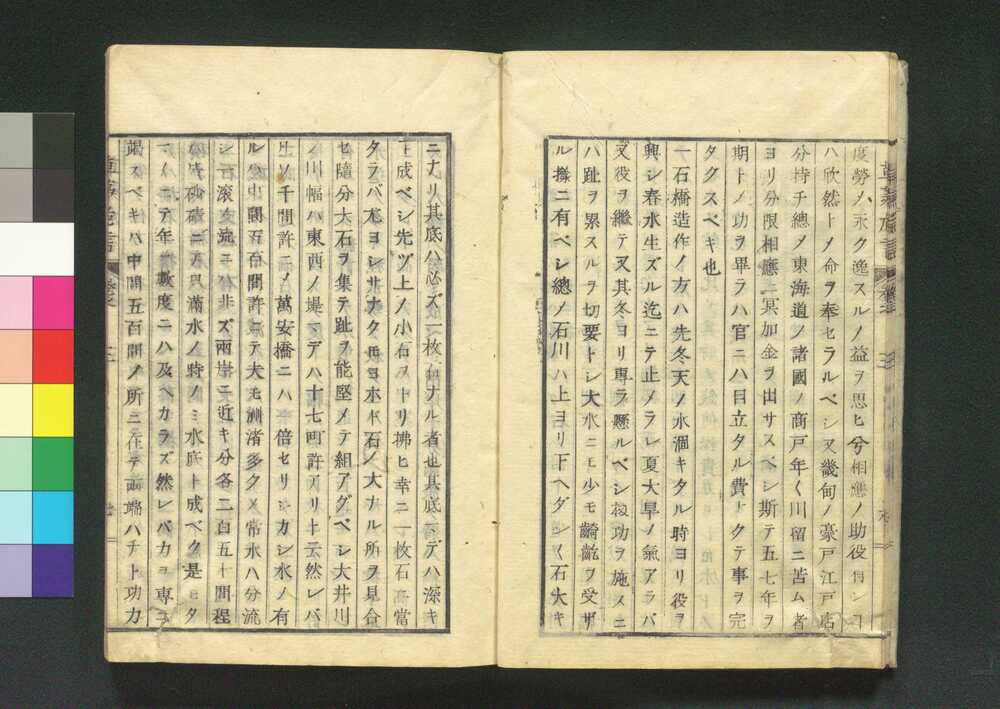 度勞ノ永ク逸スルノ益ヲ思ヒ分相應ノ助役
ハ欣然トメ命ヲ奉セラルベシ又畿甸ノ豪戸江戸店
分持チ總メ東海道ノ諸國ノ商戸年〱川留ニ苦ム者
ヨリ分限相應ニ冥加金ヲ出サスベシ斯テ五七年ヲ
期トメ功ヲ畢ラハ官ニハ目立タル費ナクテ事ヲ完
タクスベキ也
一石橋造作ノ方ハ先冬天ノ水涸キタル時ヨリ役ヲ
興シ春水生ズル迄ニテ止メラレ夏大旱ノ氣アラバ
又役ヲ繼テ又其冬ヨリ專ラ懸ルベシ扨功ヲ施スニ
ハ趾ヲ累スルヲ切要トシ大水ニモ少モ齮齕ヲ受ザ
ル樣ニ有ベシ總ノ石川ハ上ヨリ下ヘダン〱石大キ
ニナリ其底ハ必ズ一枚ナル者也其底マデハ深キ
成ベシ先ヅ上ノ小石ヲトリ拂ヒ幸ニ一枚石ニ當
タラバ尤ヨシサナクモヨホド石ノ大ナル所ヲ見合
セ隨分大石ヲ集テ趾ヲ能堅メテ組アグベシ大井川
ノ川幅ハ東西ノ堤マデハ十七町許アリト云然レバ
凡ソ千間許ニメ萬安橋ニハ倍セリシカシ水ノ有
ル中間五百間許ニテ大モ洲渚多クメ常水ハ分流
シ石滾ノ流ニ非ズ兩岸ニ近キ分各二百五十間程
砂磧ニテ只滿水ノ時ノミ水底ト成ベク是ヨタ
ニテ年數度ニハ及ベカラズ然レバ力ヲ專ニ
竭スベキハ中間五百間ノ所ニ在テ兩端ハチト功力